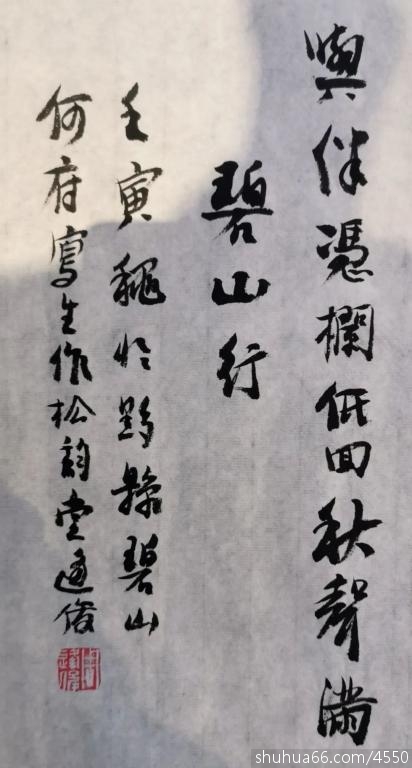 與伴憑欄低回秋聲滿
碧山行
壬寅龝於黟縣碧山
何府寫生作松韵堂逸俊
shuhua66.com/4550